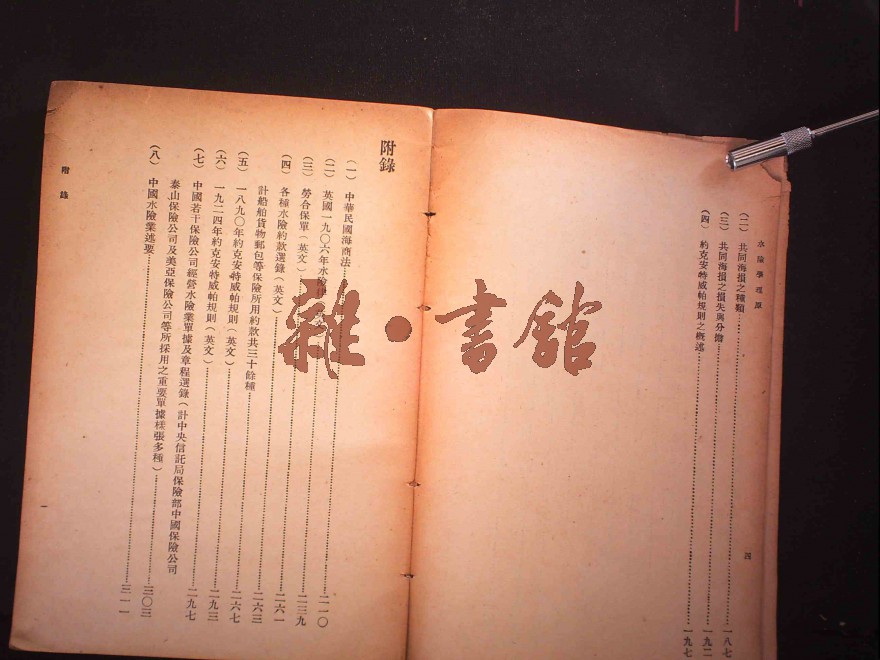 水險學原理
四
(二) 共同海損之種類 一八七
(三) 共同海損之損失與分擔 一九二
(四) 約克安特威帕規則之概述 一九七
附錄
(一) 中華民國海商法 二一〇
(二) 英國一九〇六年水險 二三九
(三) 勞合保單(英文) 二六一
(四) 各種水險約款選錄(英文) 二六三
計船舶貨物郵包等保險所用約款共三十餘種 二六七
(五) 一八九〇年約克安特威帕規則(英文) 二九三
(六) 一九二四年約克安特威帕規則(英文) 二九七
(七) 中國若干保險公司經營水險業單據及章程選錄(計中央信託局保險部中國保險公司
泰山保險公司及美亞保險公司等所採用之重要單據樣張多種) 三〇三
(八) 中國水險業述要 三一一
附錄
一
雜·書館